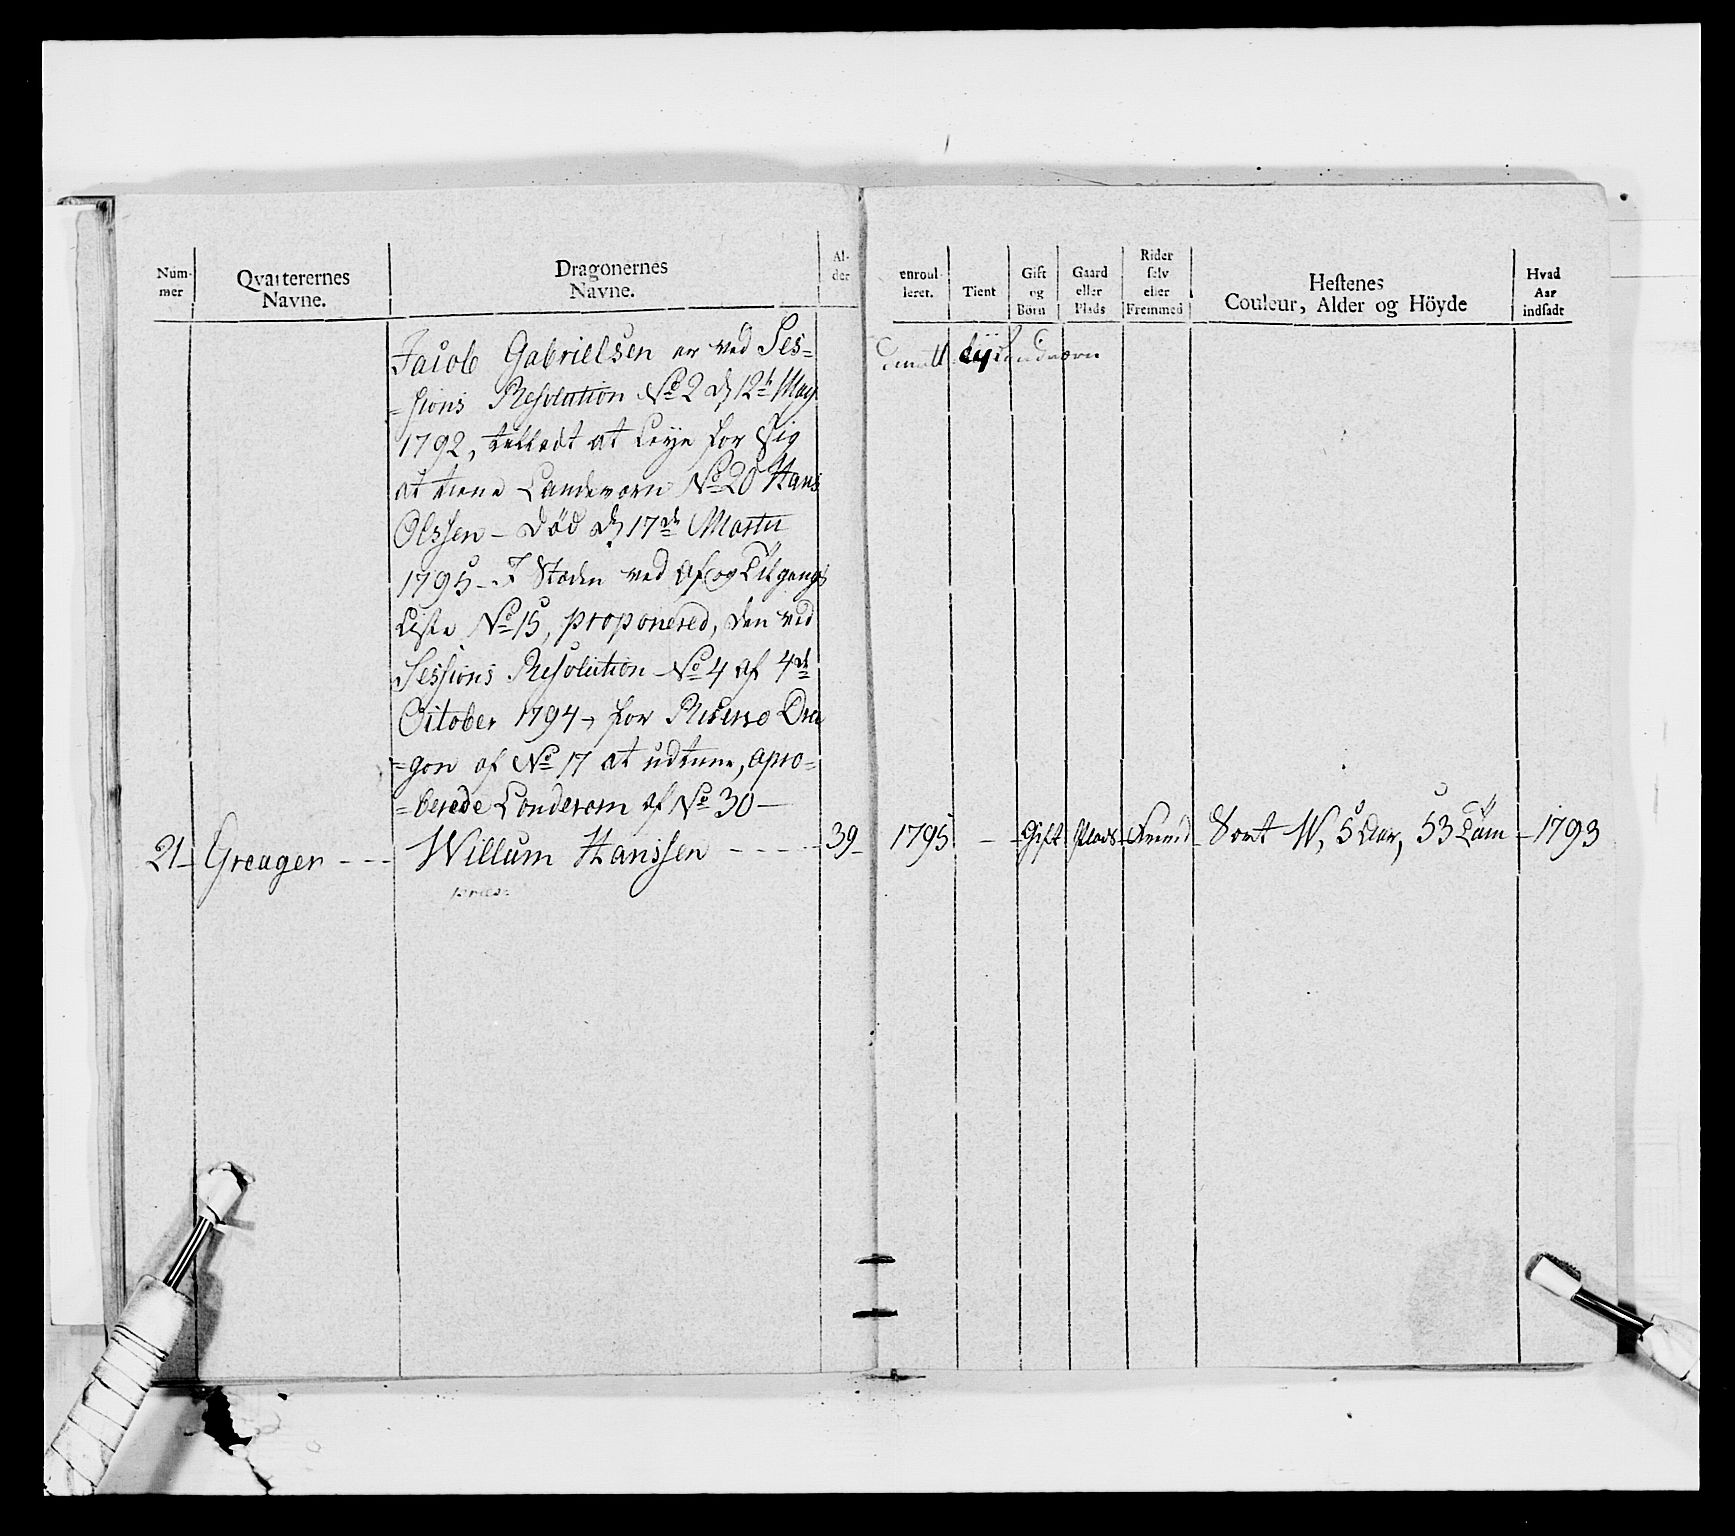 Num-
mer
Qvarterernes
Navne.
Dragonernes
Navne.
Al-
der
enroul-
leret.
Tient
Gift
og
Børn
Gaard
eller
Plads
Rider
selv
eller
Fremmed
Hestenes
Couleur, Alder og Höyde
Hvad
Aar
indsadt
Jacob Gabrielsen er ved Ses=
=sions Resolution No 2 d 12te May
1792, tilladt at Leye for sig
at tiene Landeværn No 20 Hans
Olssen – død d 17de Martii
1795 – I Steden ved af og Tilgangs
Liste No 15, proponered, den ved
Sessions Resolution No 4 af 4de
October 1794, for Reserve Dra
=gon af No 17 at udtiene, apro=
=berede Landevern af No 30 –
21 – Greager - - - Willum Hanssen - - - - - 39 – 1795 – Gift Plads Fremd Sort W, 5 Aar, 53 Tom – 1793